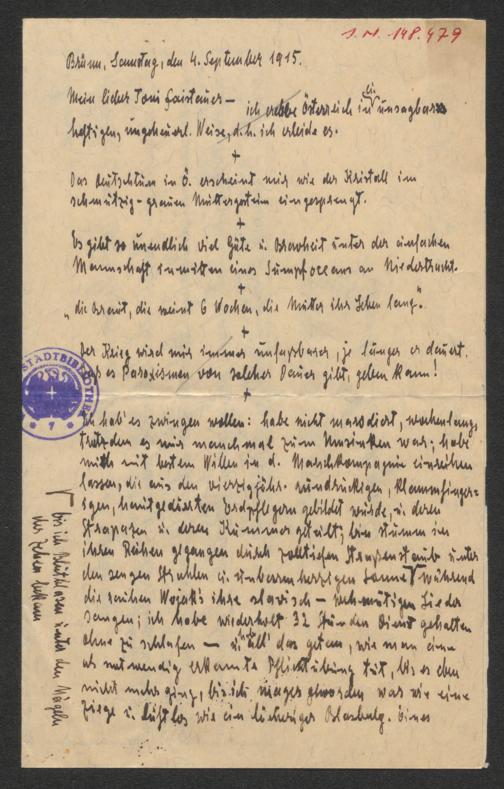 J.N. 148.479
Brünn, Samstag, den 4. September 1915.
Mein lieber Toni Faistauer — ich erlebe Österreich in unsagbar
heftigen, ungeheuerl. Weise, d.h. ich erleide es.
+
Das Deutschtum in Ö. erscheint mir wie der Kristall im
schmutzig-grauen Muttergestein eingesprengt.
+
Es gibt so unendlich viel Güte u. Bravheit unter der einfachen
Mannschaft inmitten eines Sumpfoceans an Niedertracht.
+
„die Braut, die weint 6 Wochen, die Mutter ihr Leben lang".
+
Der Krieg wird mir immer unfassbarer, je länger er dauert.
es Paroxismen von solcher Dauer gibt, geben kann!
+
Ich hab' es zwingen wollen: habe nicht marodiert, wochenlang,
trotzdem es mir manchmal zum Umsinken war; habe
mich mit bestem Willen in d. Marschkompagnie einreihen
lassen, die aus den vierzigjähr. rundrückigen, klammfinger-
igen, hartgedienten gebildet wurde, u. deren
Strapazen u. deren Kummer geteilt; bin stumm in
ihren Reihen gegangen durch zolltiefen Strassenstaub unter
den sengen Strahlen u. unbarmherzigen Sonne während
die rauhen Wojak's ihre slavisch-wehmütigen Lieder
sangen; ich habe wiederholt 32 Stunden Dienst gehalten
ohne zu schlafen — u. all' das getan, wie man eine
als notwendig erkannte Pflichtübung tut, bis es eben
nicht mehr ging, bis ich mager geworden war wie eine
Ziege u. luftlos wie ein löcheriger Blasbalg. Eines
bis ich Blutblasen unter den Nägeln
der Zehen bekam
STADTBIBLIOTHEK